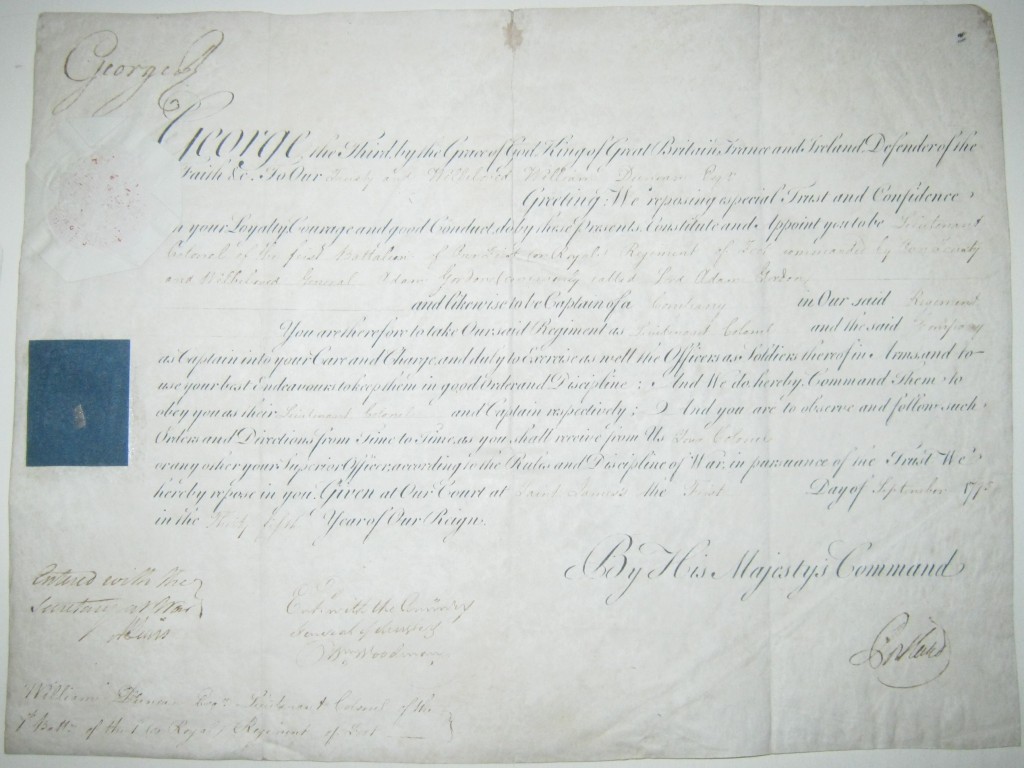 George R
George the Third, by the Grace of God, King of Great Britain, France and Ireland, Defender of the
Faith &c. To Our Trusty and Wellbeloved William Esqr
Greeting: We reposing especial Trust and Confidence
in your Loyalty, Courage and good Conduct, do by these Presents, Constitute and Appoint you to be Lieutenant
Colonel of the first Battalion of Our First (or Royal) Regiment of Foot commanded by Our Trusty
and Wellbeloved General Adam Gordon (commonly called Lord Adam Gordon)
and likewise to be Captain of a Company in Our said Regiment
You are therefore to take Our said Regiment as Lieutenant Colonel and the said Company
as Captain into your Care and Charge, and duly to Exercise as well the Officers as Soldiers thereof in Arms, and to
use your best Endeavours to keep them in good Order and Discipline; And We do hereby Command Them to
obey you as their Lieutenant Colonel and Captain respectively; And you are to observe and follow such
Orders and Directions from Time to Time, as you shall receive from Us, Your Colonel
or any other your Superior Officer, according to the Rules and Discipline of War, in pursuance of the Trust We
hereby repose in you. Given at Our Court at Saint James's the First Day of September 179
in the Thirty fifth Year of Our Reign.
By His Majesty's Command
Entered with the
Secretary at War
Lewis
Ent. with the Commissy
General of Musters
Wm Woodman
Portland
William Esqr. Lieutenant Colonel of the
1st Battn. of the 1st (or Royal) Regiment of Foot